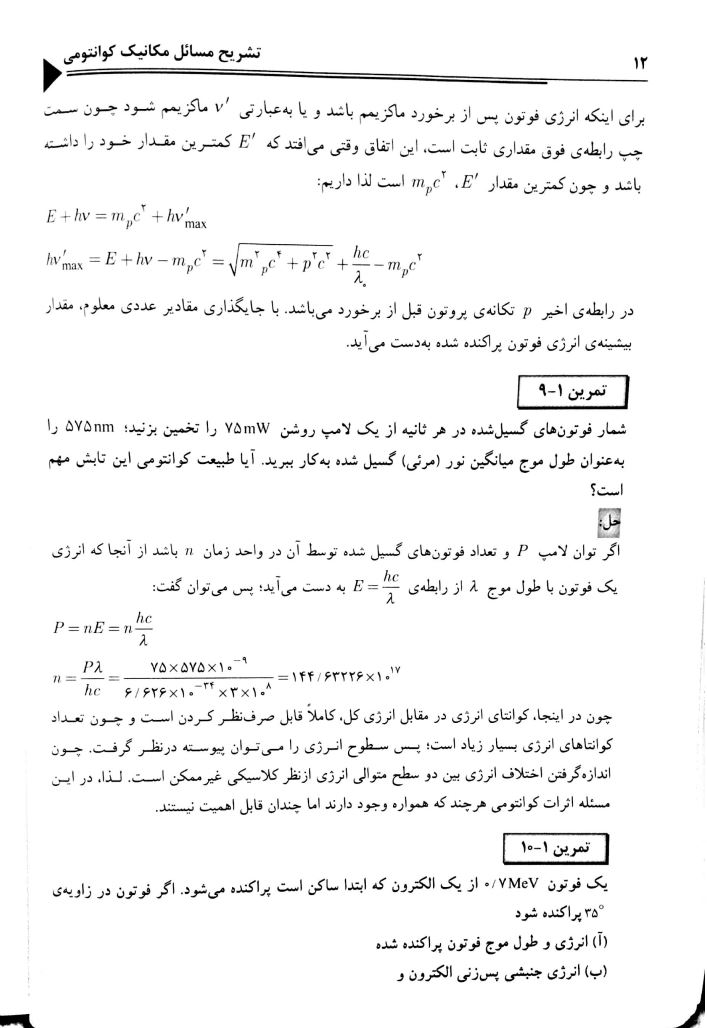 ۱۲ تشریح مسائل مکانیک کوانتومی
برای اینکه انرژی فوتون پس از برخورد ماکزیمم باشد و یا به‌عبارتی ν′ ماکزیمم شود چون سمت
چپ رابطه‌ی فوق مقداری ثابت است، این اتفاق وقتی می‌افتد که E′ کمترین مقدار خود را داشته
باشد و چون کمترین مقدار E′، m_p c^۲ است لذا داریم:
E + hν = m_p c^۲ + hν′_max
hν′_max = E + hν − m_p c^۲ = √(m^۲_p c^۴ + p^۲c^۲) + hc/λ_۰ − m_p c^۲
در رابطه‌ی اخیر p تکانه‌ی پروتون قبل از برخورد می‌باشد. با جایگذاری مقادیر عددی معلوم، مقدار
بیشینه‌ی انرژی فوتون پراکنده شده به‌دست می‌آید.
تمرین ۱-۹
شمار فوتون‌های گسیل‌شده در هر ثانیه از یک لامپ روشن ۷۵mW را تخمین بزنید؛ ۵۷۵nm را
به‌عنوان طول موج میانگین نور (مرئی) گسیل شده به‌کار ببرید. آیا طبیعت کوانتومی این تابش مهم
است؟
حل:
اگر توان لامپ P و تعداد فوتون‌های گسیل شده توسط آن در واحد زمان n باشد از آنجا که انرژی
یک فوتون با طول موج λ از رابطه‌ی E = hc/λ به دست می‌آید؛ پس می‌توان گفت:
P = nE = n hc/λ
n = Pλ/hc = ۷۵×۵۷۵×۱۰^−۹ / ۶/۶۲۶×۱۰^−۳۴×۳×۱۰^۸ = ۱۴۴/۶۳۲۲۶×۱۰^۱۷
چون در اینجا، کوانتای انرژی در مقابل انرژی کل، کاملاً قابل صرف‌نظر کردن است و چون تعداد
کوانتاهای انرژی بسیار زیاد است؛ پس سطوح انرژی را می‌توان پیوسته درنظر گرفت. چون
اندازه‌گرفتن اختلاف انرژی بین دو سطح متوالی انرژی ازنظر کلاسیکی غیرممکن است. لذا، در این
مسئله اثرات کوانتومی هرچند که همواره وجود دارند اما چندان قابل اهمیت نیستند.
تمرین ۱-۱۰
یک فوتون ۰/۷MeV از یک الکترون که ابتدا ساکن است پراکنده می‌شود. اگر فوتون در زاویه‌ی
۳۵° پراکنده شود
(آ) انرژی و طول موج فوتون پراکنده شده
(ب) انرژی جنبشی پس‌زنی الکترون و